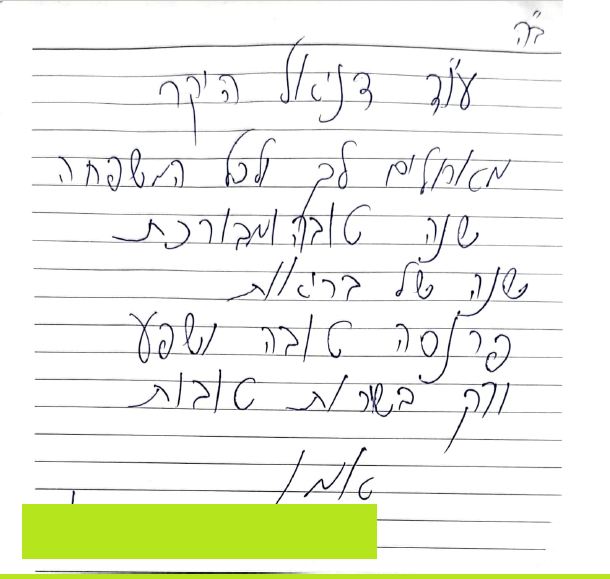 ב"ה
עו"ד דניאל היקר
מאחלים לך ולכל המשפחה
שנה טובה ומבורכת
שנה של בריאות
פרנסה טובה ושפע
ורק בשורות טובות
אמן